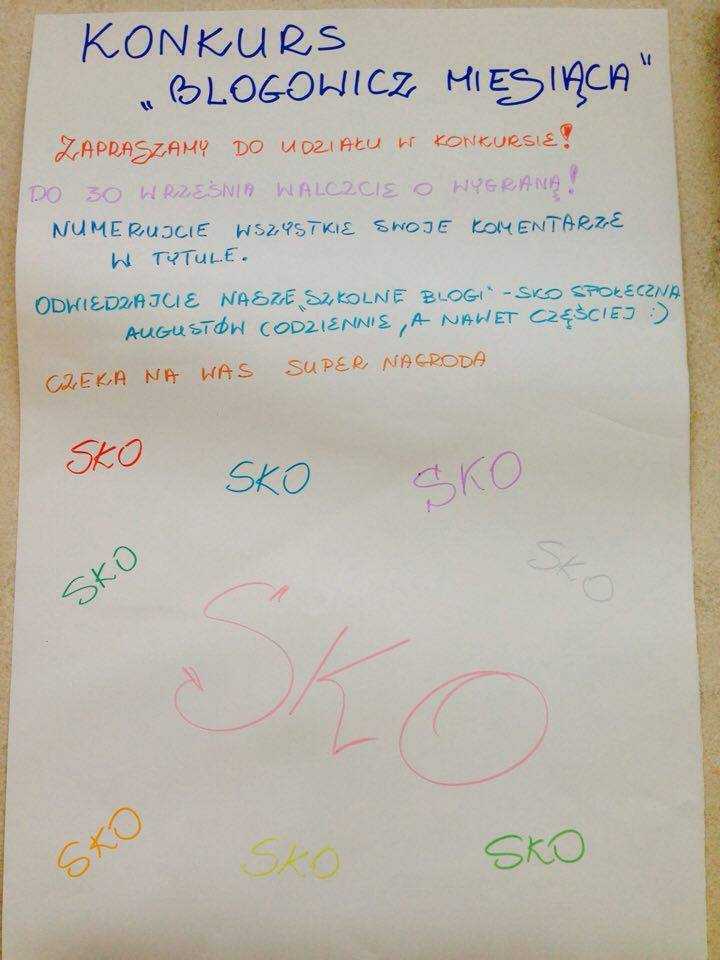 KONKURS
„BLOGOWICZ MIESIĄCA"
ZAPRASZAMY DO UDZIAŁU W KONKURSIE!
DO 30 WRZEŚNIA WALCZCIE O WYGRANĄ!
NUMERUJCIE WSZYSTKIE SWOJE KOMENTARZE
W TYTULE.
ODWIEDZAJCIE NASZE „SZKOLNE BLOGI" - SKO SPOŁECZNA
AUGUSTÓW CODZIENNIE, A NAWET CZĘŚCIEJ :)
CZEKA NA WAS SUPER NAGRODA
SKO
SKO
SKO
SKO
SKO
SKO
SKO
SKO
SKO